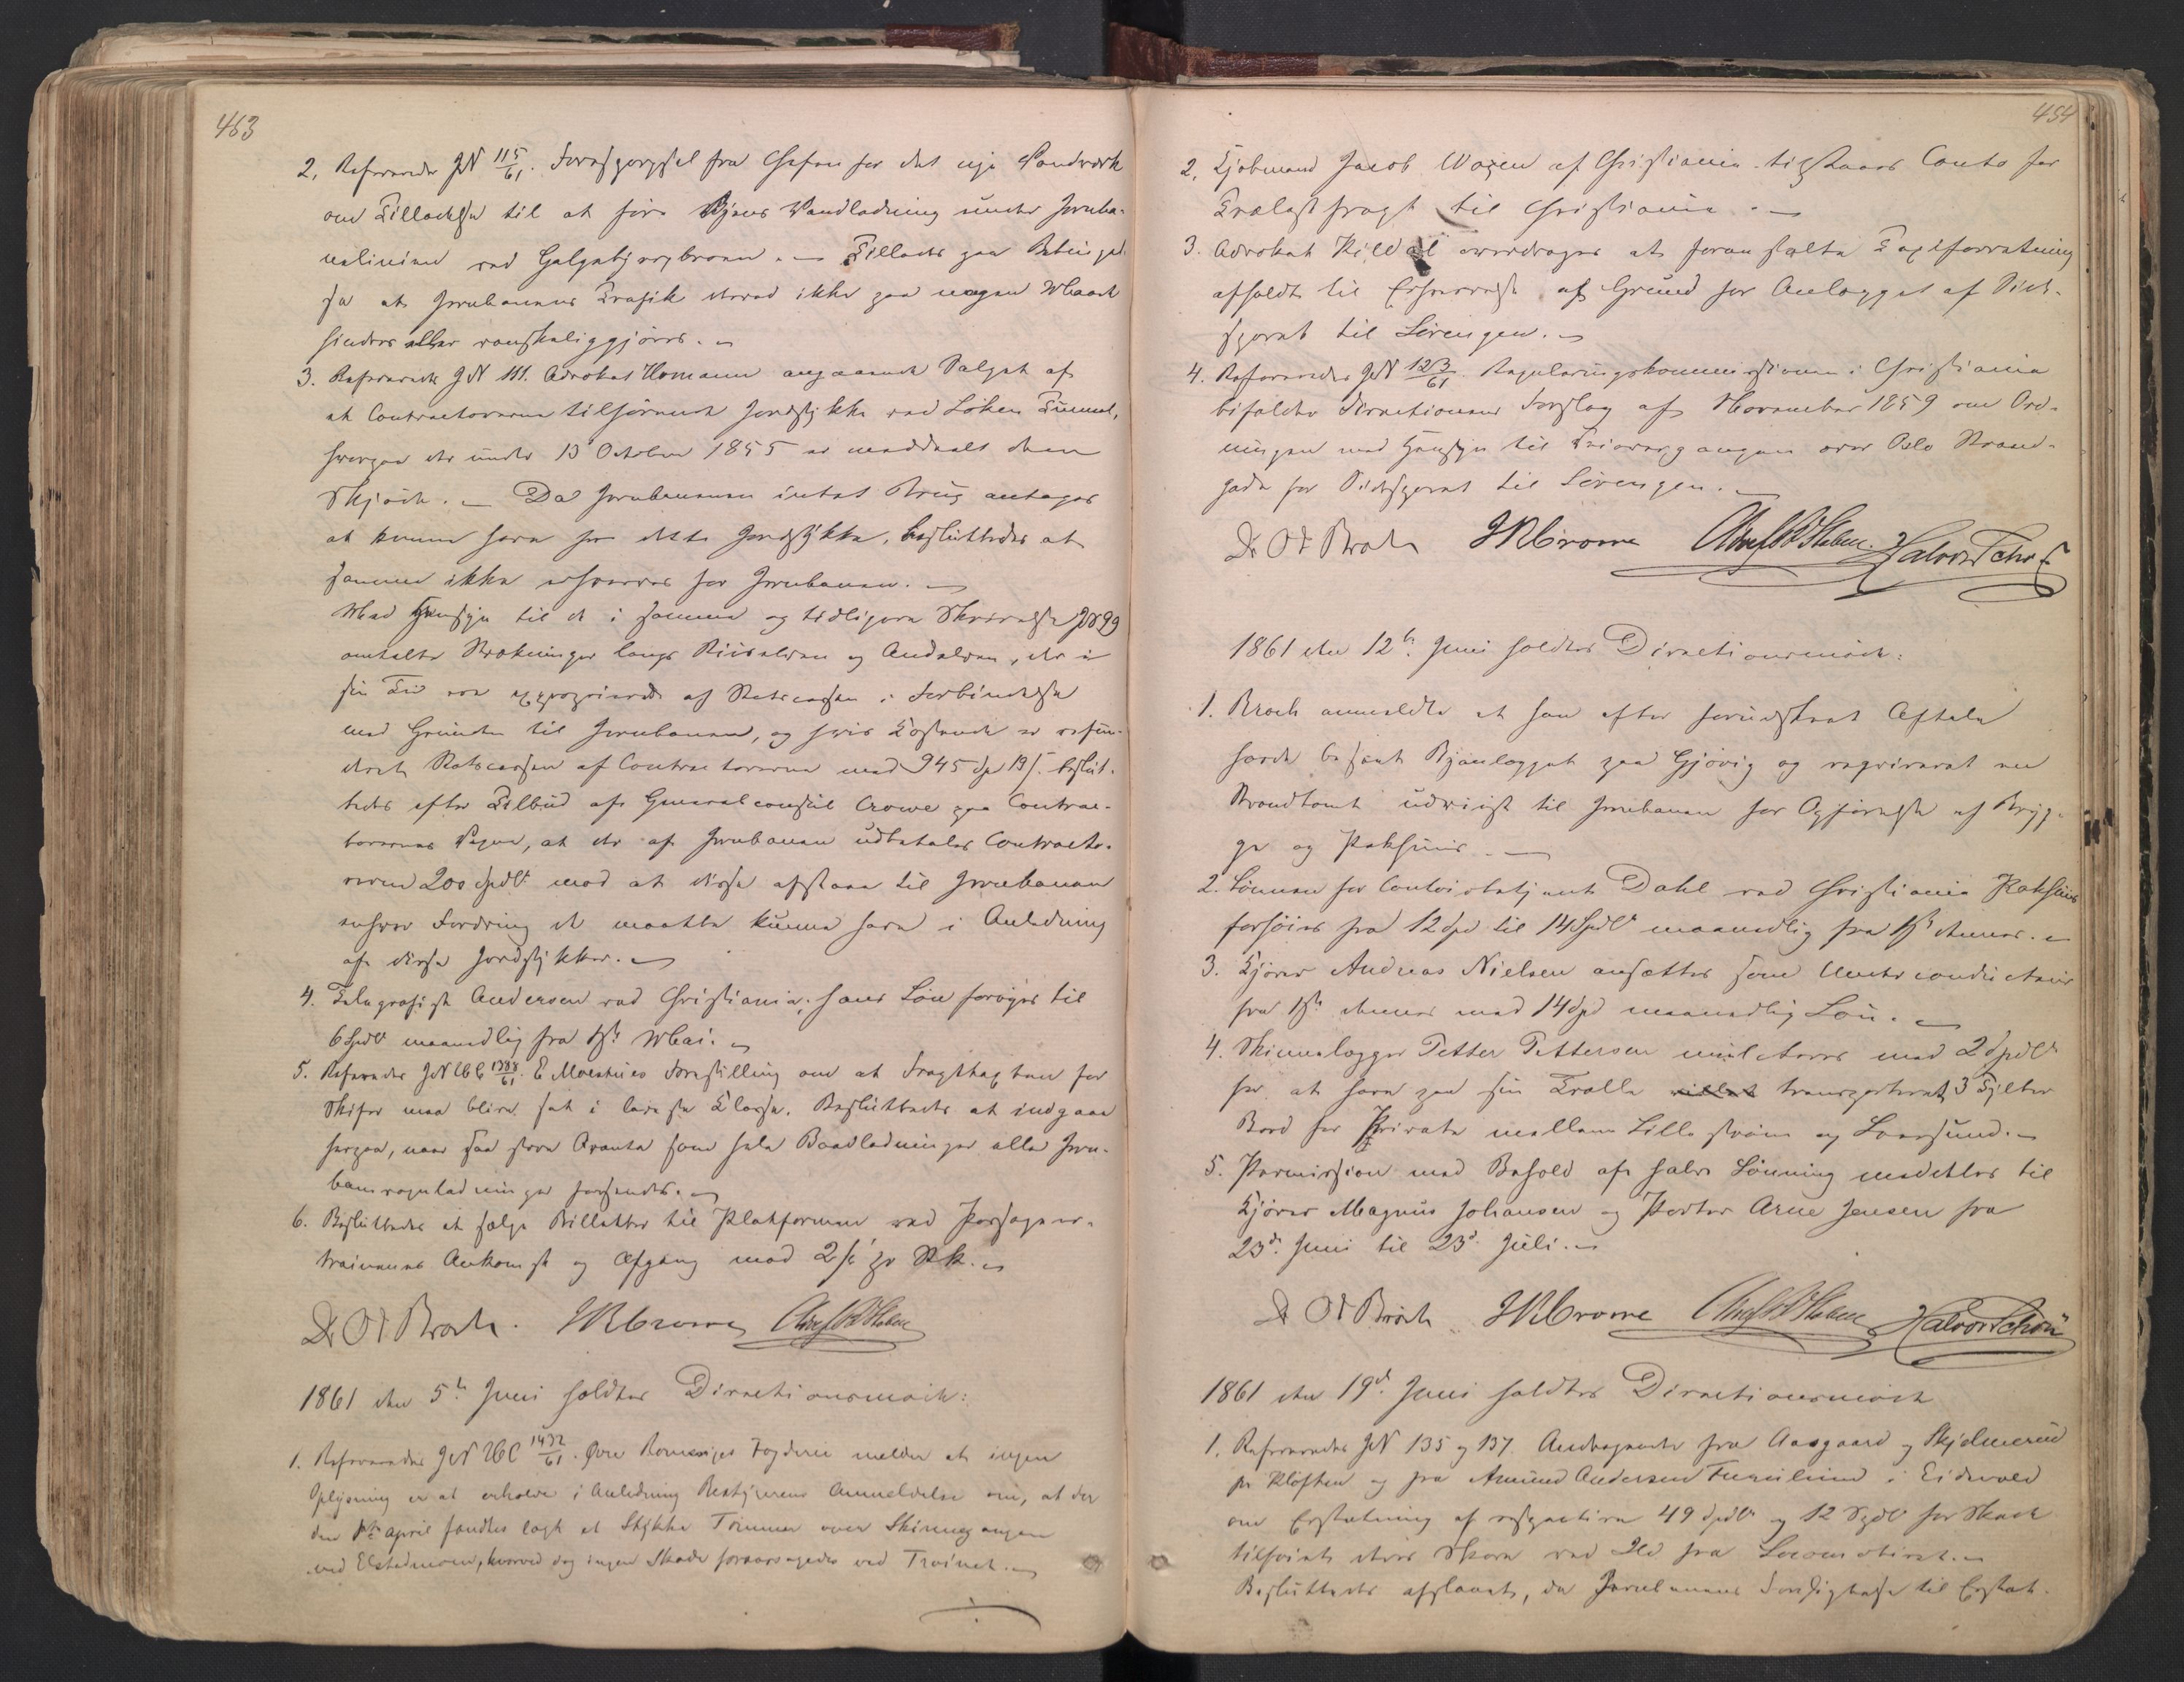 463
2. Refereredes JN 115/61. Forespørgsel fra Chefen for det nye Vandværk
om Tilladelse til at føre Byens Vandledning under Jernba-
nelinien ved Galgebjergbroen. — Tillades paa Betingel-
se at Jernbanens Trafik derved ikke paa nogen Maade
hindres eller vanskeliggjøres. —
3. Refererede JN 111. Advokat Homann angaaende Salget af
et Contractorerne tilhørende Jordstykke ved Løken Tunnel,
hvorpaa der under 13 October 1855 er meddeelt dem
Skjøde. — Da Jernbanen intet Brug antages
at kunne have for dette Jordstykke, besluttedes at
samme ikke erhverves for Jernbanen. —
Med Hensyn til de i samme og tidligere Skrivelse JN 99
omtalte Strækninger langs Riiselven og Andelven, der i
sin Tid var exproprierede af Statscassen i Forbindelse
med Grunden til Jernbanen, og hvis Kostende er refun-
deret Statscassen af Contractorerne med 945 Spd 19 s. beslut-
tedes efter Tilbud af Generalconsul Crowe paa Contrac-
torernes Vegne, at der af Jernbanen udbetales Contracto-
rerne 200 Spdlr mod at disse afstaae til Jernbanen
enhver Fordring de maatte kunne have i Anledning
af disse Jordstykker. —
4. Telegrafist Andersen ved Christiania; hans Løn forøges til
6 Spdlr maanedlig fra 1ste Mai. —
5. Refereredes JN UC 1388/61. E Moestues Forestilling om at Fragttaxten for
Skifer maa blive sat i laveste Classe. Besluttedes at indgaae
herpaa, naar saa store Qvanta som hele Baadladninger eller Jern-
banevognladninger forsendes. —
6. Besluttedes at sælge Billetter til Platformen ved Persontog-
trainenes Ankomst og Afgang mod 2 s pr Stk. —
Dr O J Broch. J R Crowe
1861 den 5te Juni holdtes Directionsmøde:
1. Refereredes JN UC 1432/61. Øvre Romeriges Fogderie melder at ingen
Oplysning er at erholde i Anledning Bestyrerens Anmeldelse om, at der
den 1ste April fandtes lagt et Stykke Tømmer over Skinnegangen
ved Elstadmoen, hvorved dog ingen Skade foraarsagedes ved Trainet. —
454
2. Kjøbmand Jacob Wogen af Christiania tilstaaes Conto for
Trælastfragt til Christiania. —
3. Advokat Kildal overdrages at foranstalte Taxtforretning
afholdt til Erhvervelse af Grund for Anlægget af Side-
sporet til Sørengen. —
4. Refereredes JN 123/61. Reguleringskommissionen i Christiania
bifalder Directionens Forslag af November 1859 om Ord-
ningen med Hensyn til Veiovergangen over Oslo Strand-
gade for Sidesporet til Sørengen. —
Dr O J Broch J R Crowe Halvor Schou
1861 den 12te Juni holdtes Directionsmøde:
1. Broch anmeldte at han efter forudskeet Aftale
havde besøgt Byanlægget paa Gjøvig og reqvireret en
Strandtomt udviist til Jernbanen for Opførelse af Bryg-
ge og Pakhuus. —
2. Lønnen for Contoirbetjent Dahl ved Christiania Pakhuus
forhøies fra 12 Spd til 14 Spdlr maanedlig fra 1ste dennes. —
3. Kjører Andreas Nielsen ansættes som Underconducteur
fra 1ste dennes med 14 Spd maanedlig Løn. —
4. Skinnelægger Petter Pettersen mulcteres med 2 Spdlr
for at have paa sin Tralle transporteret 3 Tylter
Bord for Private mellem Lillestrøm og Leersund. —
5. Permission med Behold af halv Lønning meddeltes til
Kjører Magnus Johansen og Portør Arne Jensen fra
23de Juni til 23de Juli. —
Dr O J Broch J R Crowe Halvor Schou
1861 den 19de Juni holdtes Directionsmøde
1. Refereredes JN 135 og 137. Andragende fra Aasgaard og Skjelmerud
pr Kløften og fra Amund Andersen i Eidsvold
om Erstatning af respective 49 Spdlr og 12 Spdlr for Skade
tilføiet deres Skove ved Ild fra Locomotivet. —
Besluttedes afslaaet, da Jernbanens Forpligtelse til Erstat-